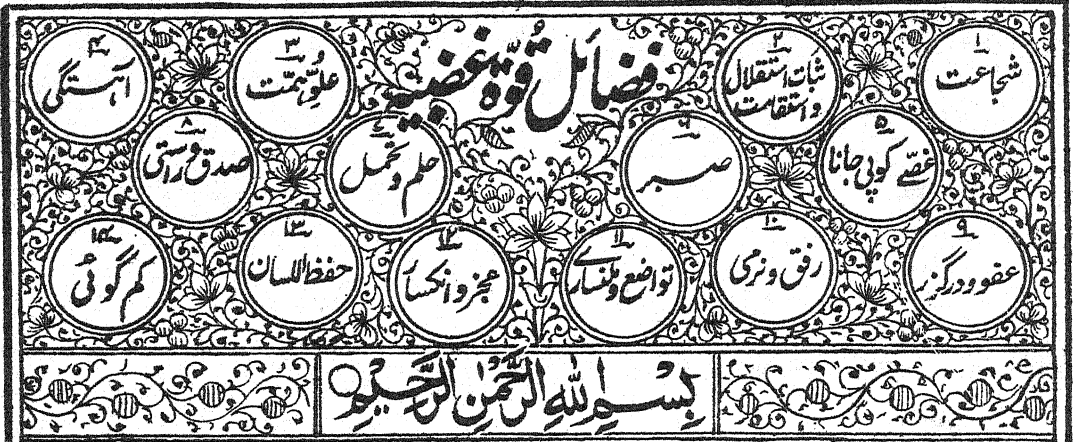 فضائل قوّۃ غضبیہ
۱
شجاعت
۲
ثبات استقلال
و استقامت
۳
علوِّ ہمّت
۴
آہستگی
۵
غصّے کو پی جانا
۶
صبر
۷
حلم و تحمل
۸
صدق و راستی
۹
عفو و درگزر
۱۰
رفق و نرمی
۱۱
تواضع و ملنساری
۱۲
عجز و انکسار
۱۳
حفظ اللسان
۱۴
کم گوئی
بِسْمِ اللهِ الرَّحْمٰنِ الرَّحِيْمِ